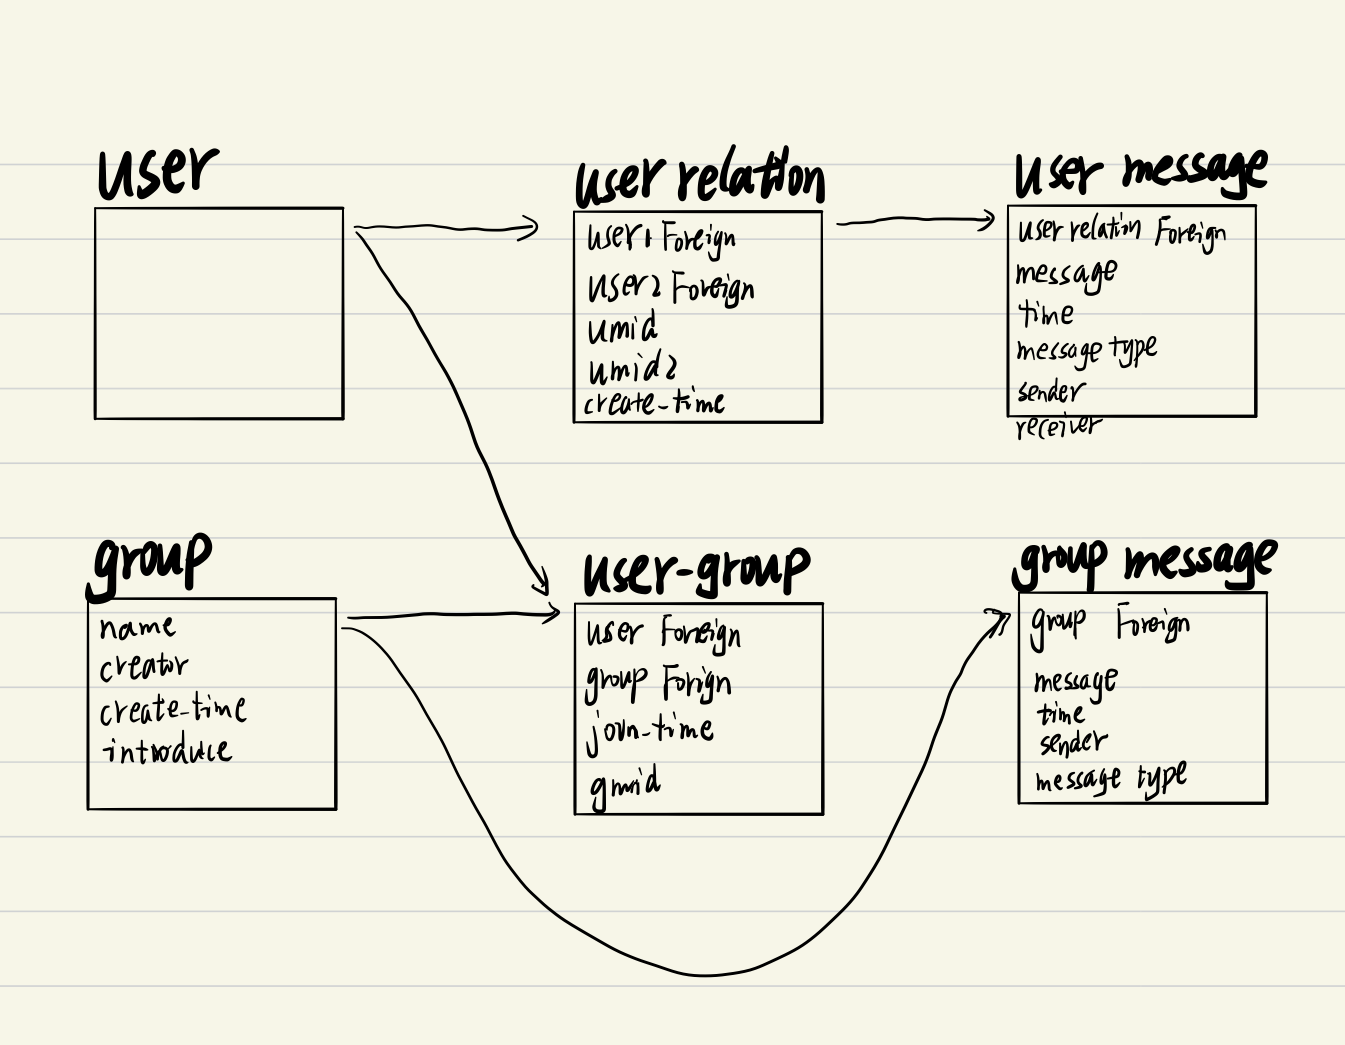 user
user relation
user1 Foreign
user2 Foreign
umid
umid2
create-time
user message
user relation Foreign
message
time
message type
sender
receiver
group
name
creator
create-time
introduce
user-group
user Foreign
group Forign
join-time
gmid
group message
group Foreign
message
time
sender
message type